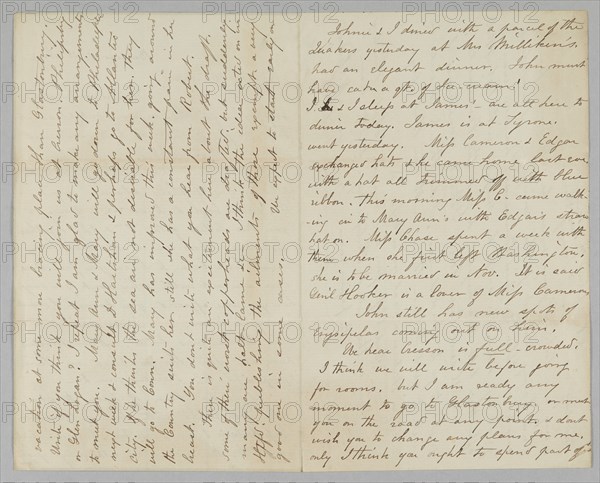 Johnie & I dined with a parcel of the
Quakers yesterday at Mrs Milliken's.
had an elegant dinner. John must
have eaten a qt. of Ice-cream!
I & I sleep at James' - are all here to
dinner today. James is at Tyrone.
went yesterday. Miss Cameron & Edgar
exchanged hats & she came home last eve
with a hat all trimmed off with blue
ribbon. This morning Miss C- came walk-
ing in to Mary Ann's with Edgar's straw
hat on. Miss Chase spent a week with
them when she first left Washington,
she is to be married in Nov. It is said
Genl Hooker is a lover of Miss Cameron
John still has new spots of
Erysipelas coming out on him.
We hear Cresson is full-crowded.
I think we will write before going
for rooms. but I am ready any
moment to go to Glastonbury, or meet
you on the road at any point, & dont
wish you to change any plans for me,
only I think you ought to spend part of yr
vacation at some more bracing place than Glastonbury
Write if you think you will
or Glen Logan? I repeat I am glad to make any arrangement
to meet you. Mary Ann & Mary will go down to Philadelphia
next week & consult Dr Hartshorn & perhaps go to Atlantic
City. If he thinks the sea air not desirable for him, they
will go to Conn. Mary has improved this week, going around
the Country suits her still she has a constant pain in her
breast. You don't write what you hear from Robert.
There is quite an excitement here about the draft.
Some of their worst copperheads are drafted, but suddenly
many are half lame. I think the
publishing the ailments of those exempt a very
good one in some cases. We expect to start early on